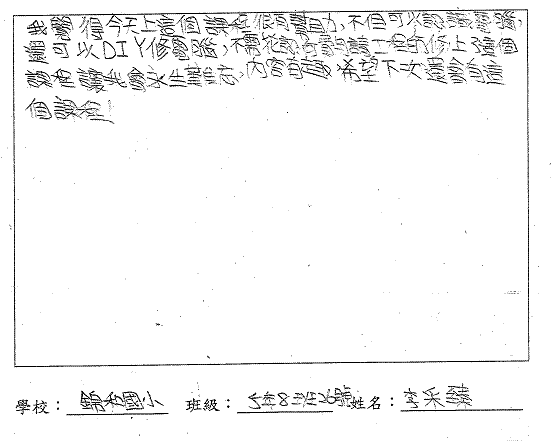 我覺得今天上這個課程很有幫助，不但可以認識電腦，
還可以DIY修電腦，不需花錢請工程師修，上了這個
課程讓我會永生難忘，內容有趣，希望下次還會有這
個課程！
學校：錦和國小 班級：5年8班26號 姓名：李采臻